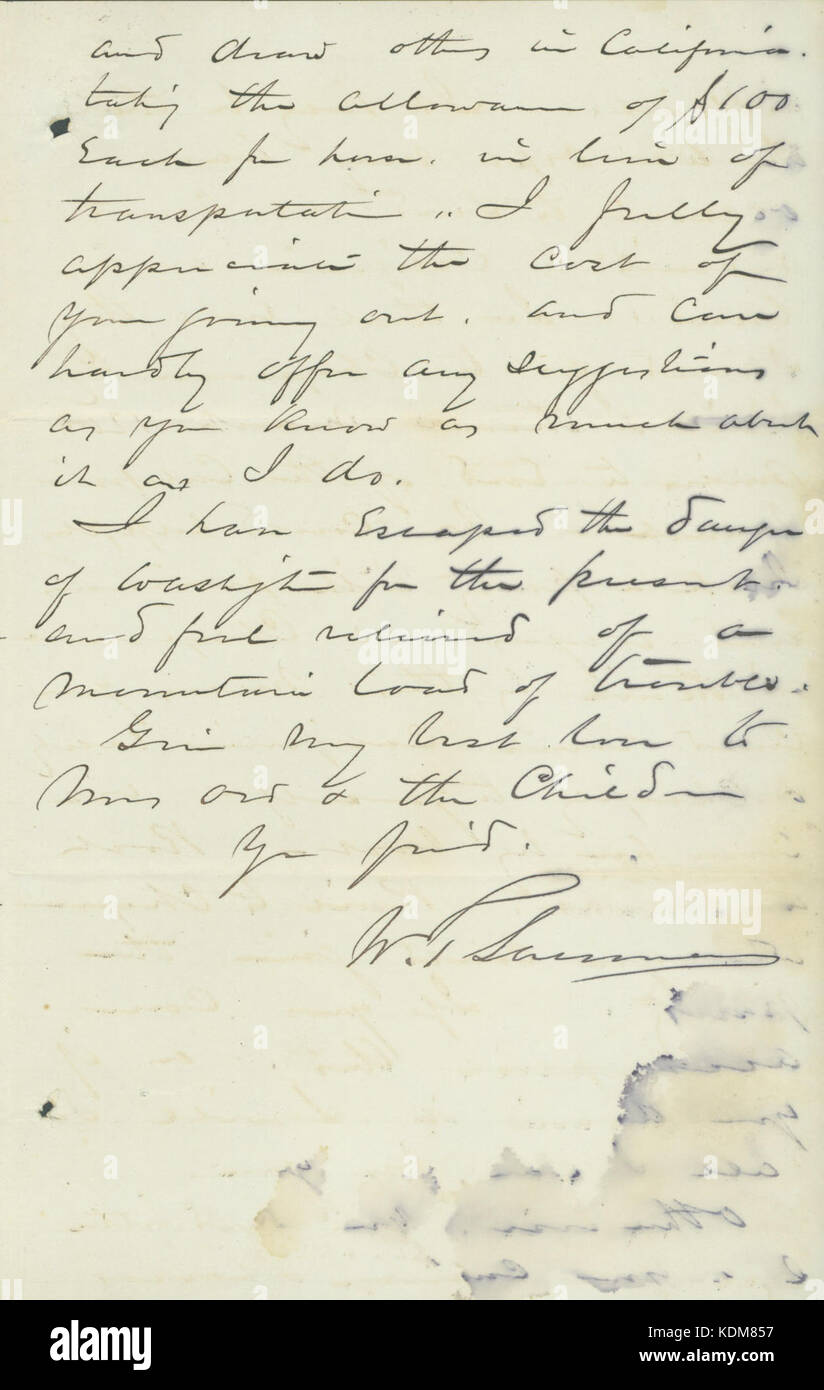 and draw others in California.
taking the allowance of $100
Each for horse. in lieu of
transportation .. I fully
appreciate the cost of
your going out. and can
hardly offer any suggestions
as you know as much about
it as I do.
I have Escaped the danger
of Washington for the present.
and feel relieved of a
mountain load of trouble.
Give my best love to
Mrs Ord & the Children
Yr friend.
W. T. Sherman
alamy stock photo
KDM857
www.alamy.com